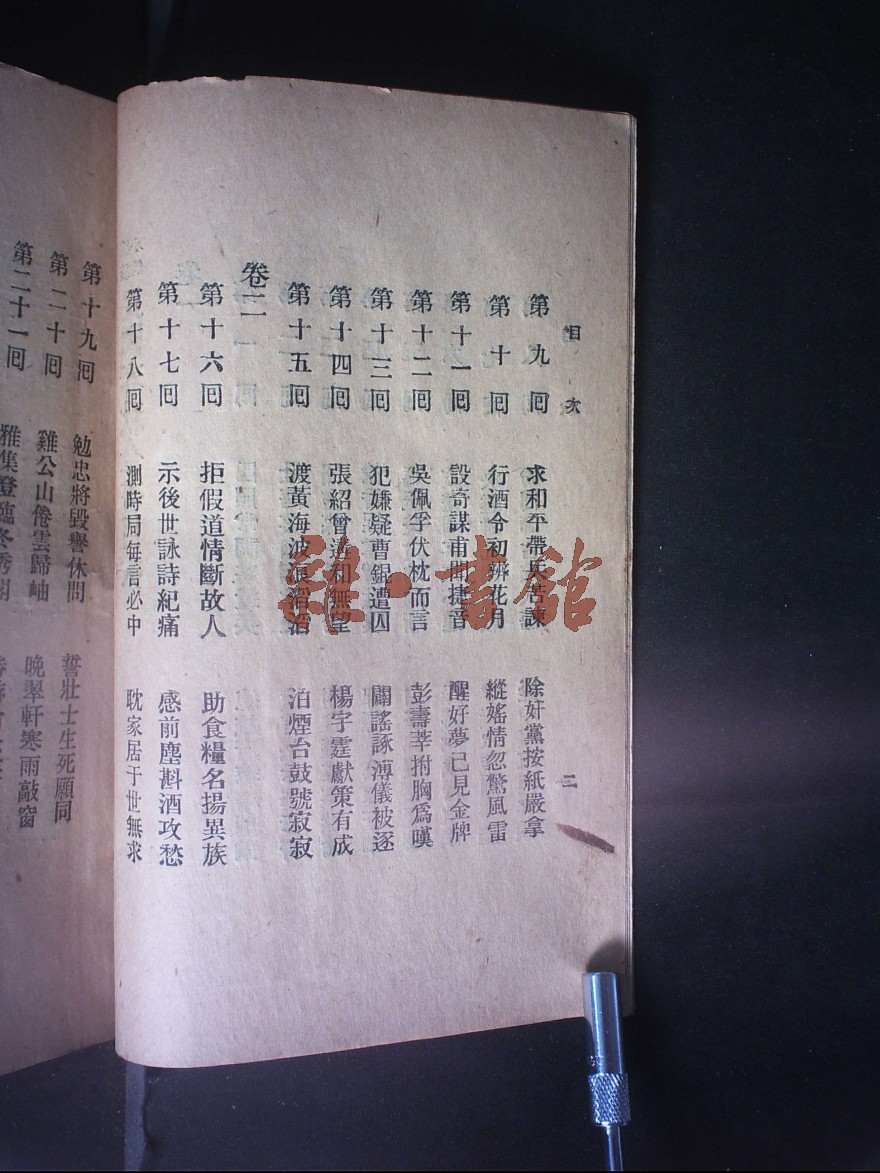 目次
第九回 求和平帶兵苦諫 除奸黨按紙嚴拿
第十回 行酒令初辨花月 縱婬情忽驚風雷
第十一回 設奇謀甫聞捷音 醒好夢已見金牌
第十二回 吳佩孚伏枕而言 彭壽莘拊胸爲嘆
第十三回 犯嫌疑曹錕遭囚 闢謠諑溥儀被逐
第十四回 張紹曾 和無望 楊宇霆獻策有成
第十五回 渡黃海波浪滔滔 泊煙台鼓號寂寂
卷二
第十六回 拒假道情斷故人 助食糧名揚異族
第十七回 示後世詠詩紀痛 感前塵斟酒攻愁
第十八回 測時局每言必中 耽家居于世無求
二
第十九回 勉忠將毀譽休問 誓壯士生死願同
第二十回 雞公山倦雲歸岫 晚翠軒寒雨敲窗
第二十一回 雅集登臨冬秀
雜·書館